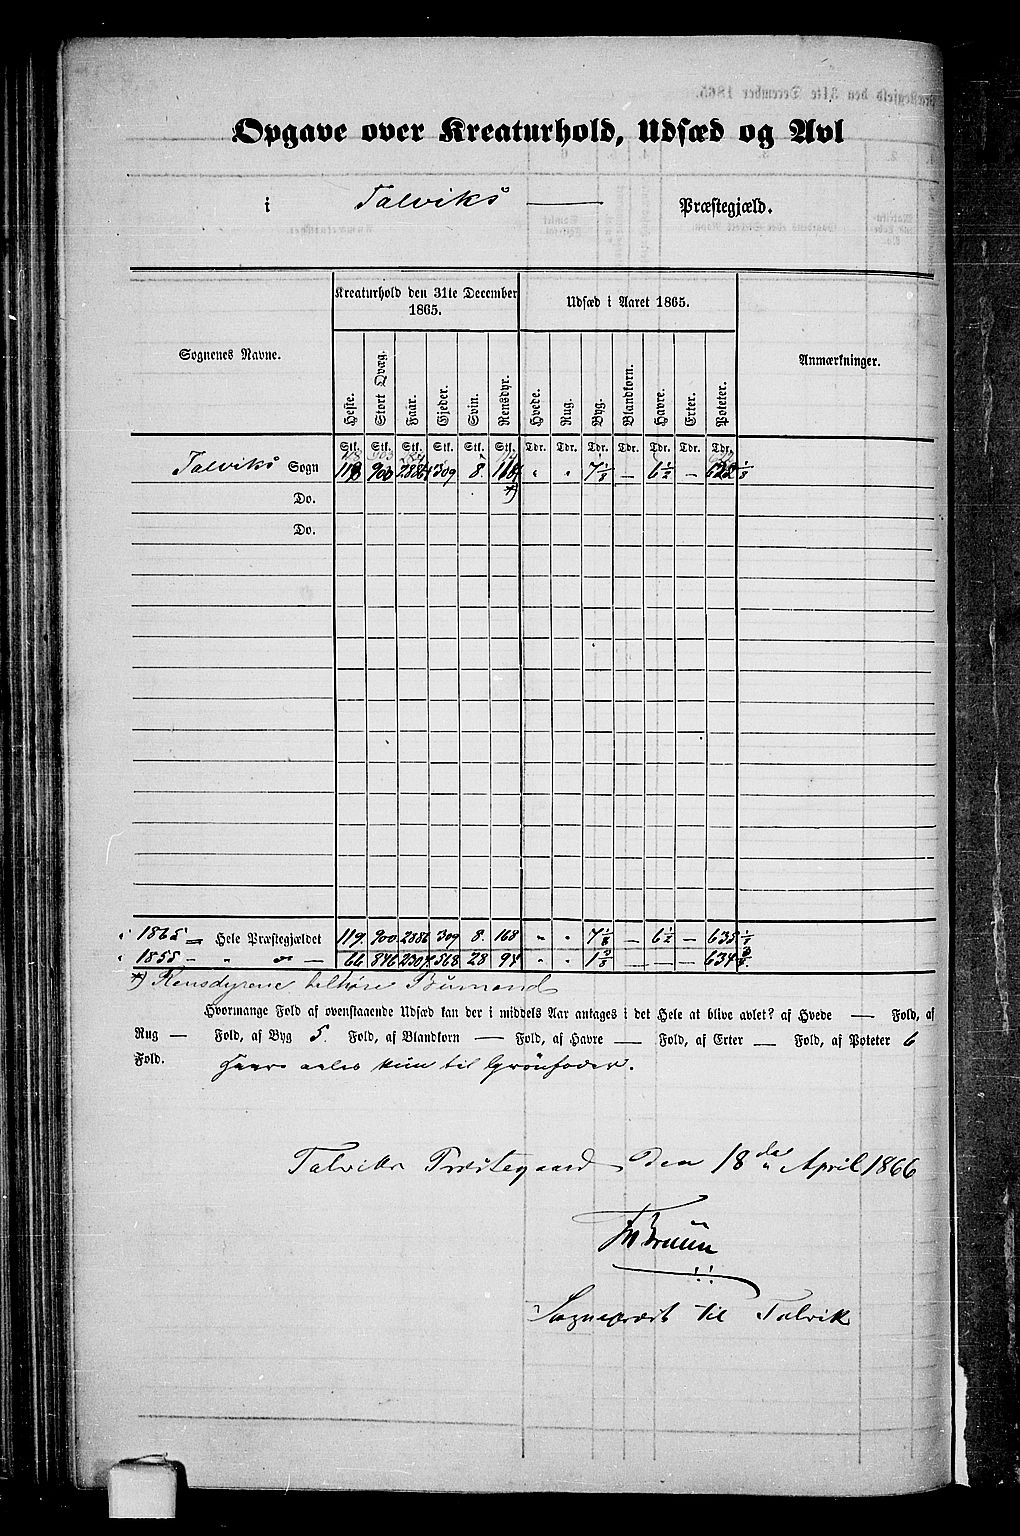 Opgave over Kreaturhold, Udsæd og Avl
i Talviks Præstegjæld.
Sognenes Navne. Kreaturhold den 31te December 1865. Udsæd i Aaret 1865. Anmærkninger.
Heste. Stort Qvæg. Faar. Gjeder. Svin. Rensdyr. Hvede. Rug. Byg. Blandkorn. Havre. Erter. Poteter.
Stk. Stk. Stk. Stk. Stk. Stk. Tdr. Tdr. Tdr. Tdr. Tdr. Tdr. Tdr.
Talviks Sogn 900 309 8. " " 7 1/8 — 6 1/2 —
*)
Do.
Do.
i 1865 = Hele Præstegjældet 119. 900. 2886 309 8. 168 " " 7 1/8 — 6 1/2 — 635 1/8
" 1855 - " " - 66 846 2304 568 28 94 " " 1 3/8 — — — 634 3/8.
*) Rensdyrene tilhöre Bumænd
Hvormange Fold af ovenstaaende Udsæd kan der i middels Aar antages i det Hele at blive avlet? af Hvede — Fold, af
Rug — Fold, af Byg 5. Fold, af Blandkorn — Fold, af Havre — Fold, af Erter — Fold, af Poteter 6
Fold. avles kun til Grönfoder.
Talviks Præstegaard den 18de April 1866
Bruun
Sognepræst til Talvik